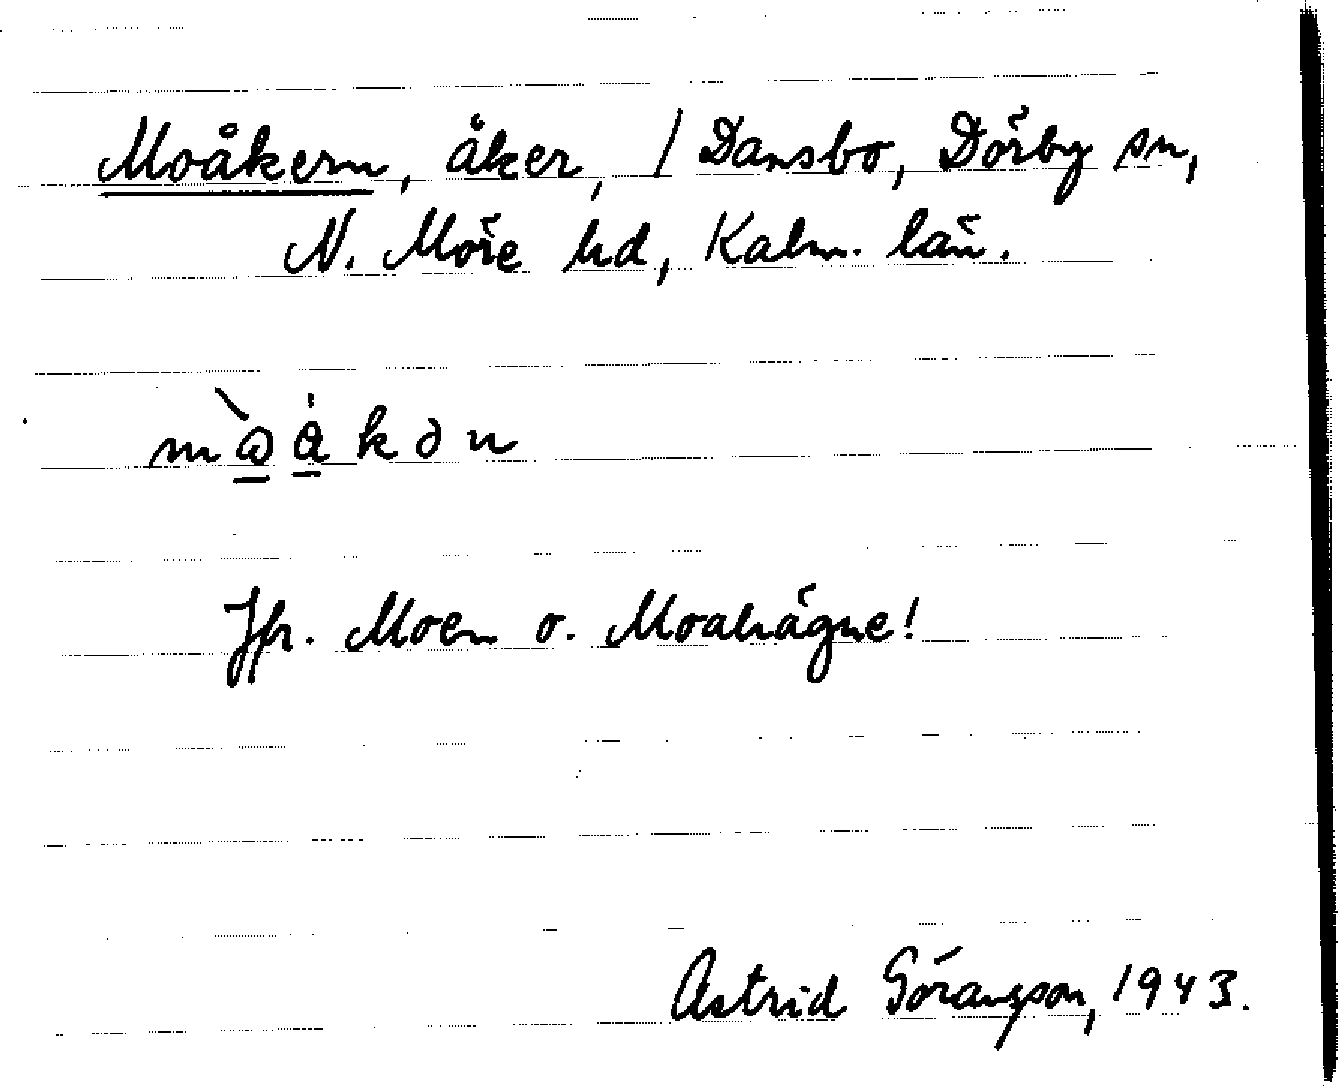 Moåkern, åker, / Dansbo, Dörby sn,
N. Möre hd, Kalm. län.
mò︠a̠̍kən
Jfr. Moen o. Moahägne!
Astrid Göransson, 1943.